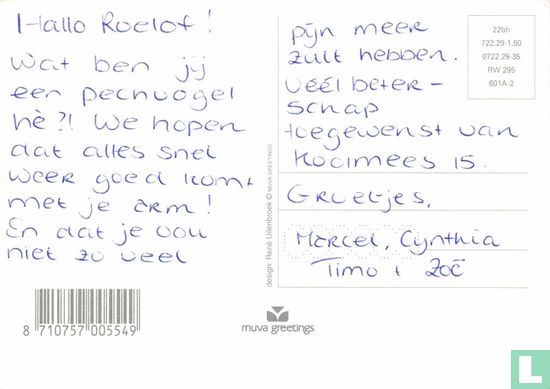 Hallo Roelof!
Wat ben jij
een pechvogel
hè?! We hopen
dat alles snel
weer goed komt
met je arm!
En dat je ook
niet zo veel
pijn meer
zult hebben.
Véél beter-
schap
toegewenst van
Koolmees 15.
Groetjes,
Marcel, Cynthia
Timo + Zoë
22bh
722.29-1,50
0722.29-35
RW 295
601A-2
design: René Uilenbroek © MUVA GREETINGS
muva greetings
8 710757 005549